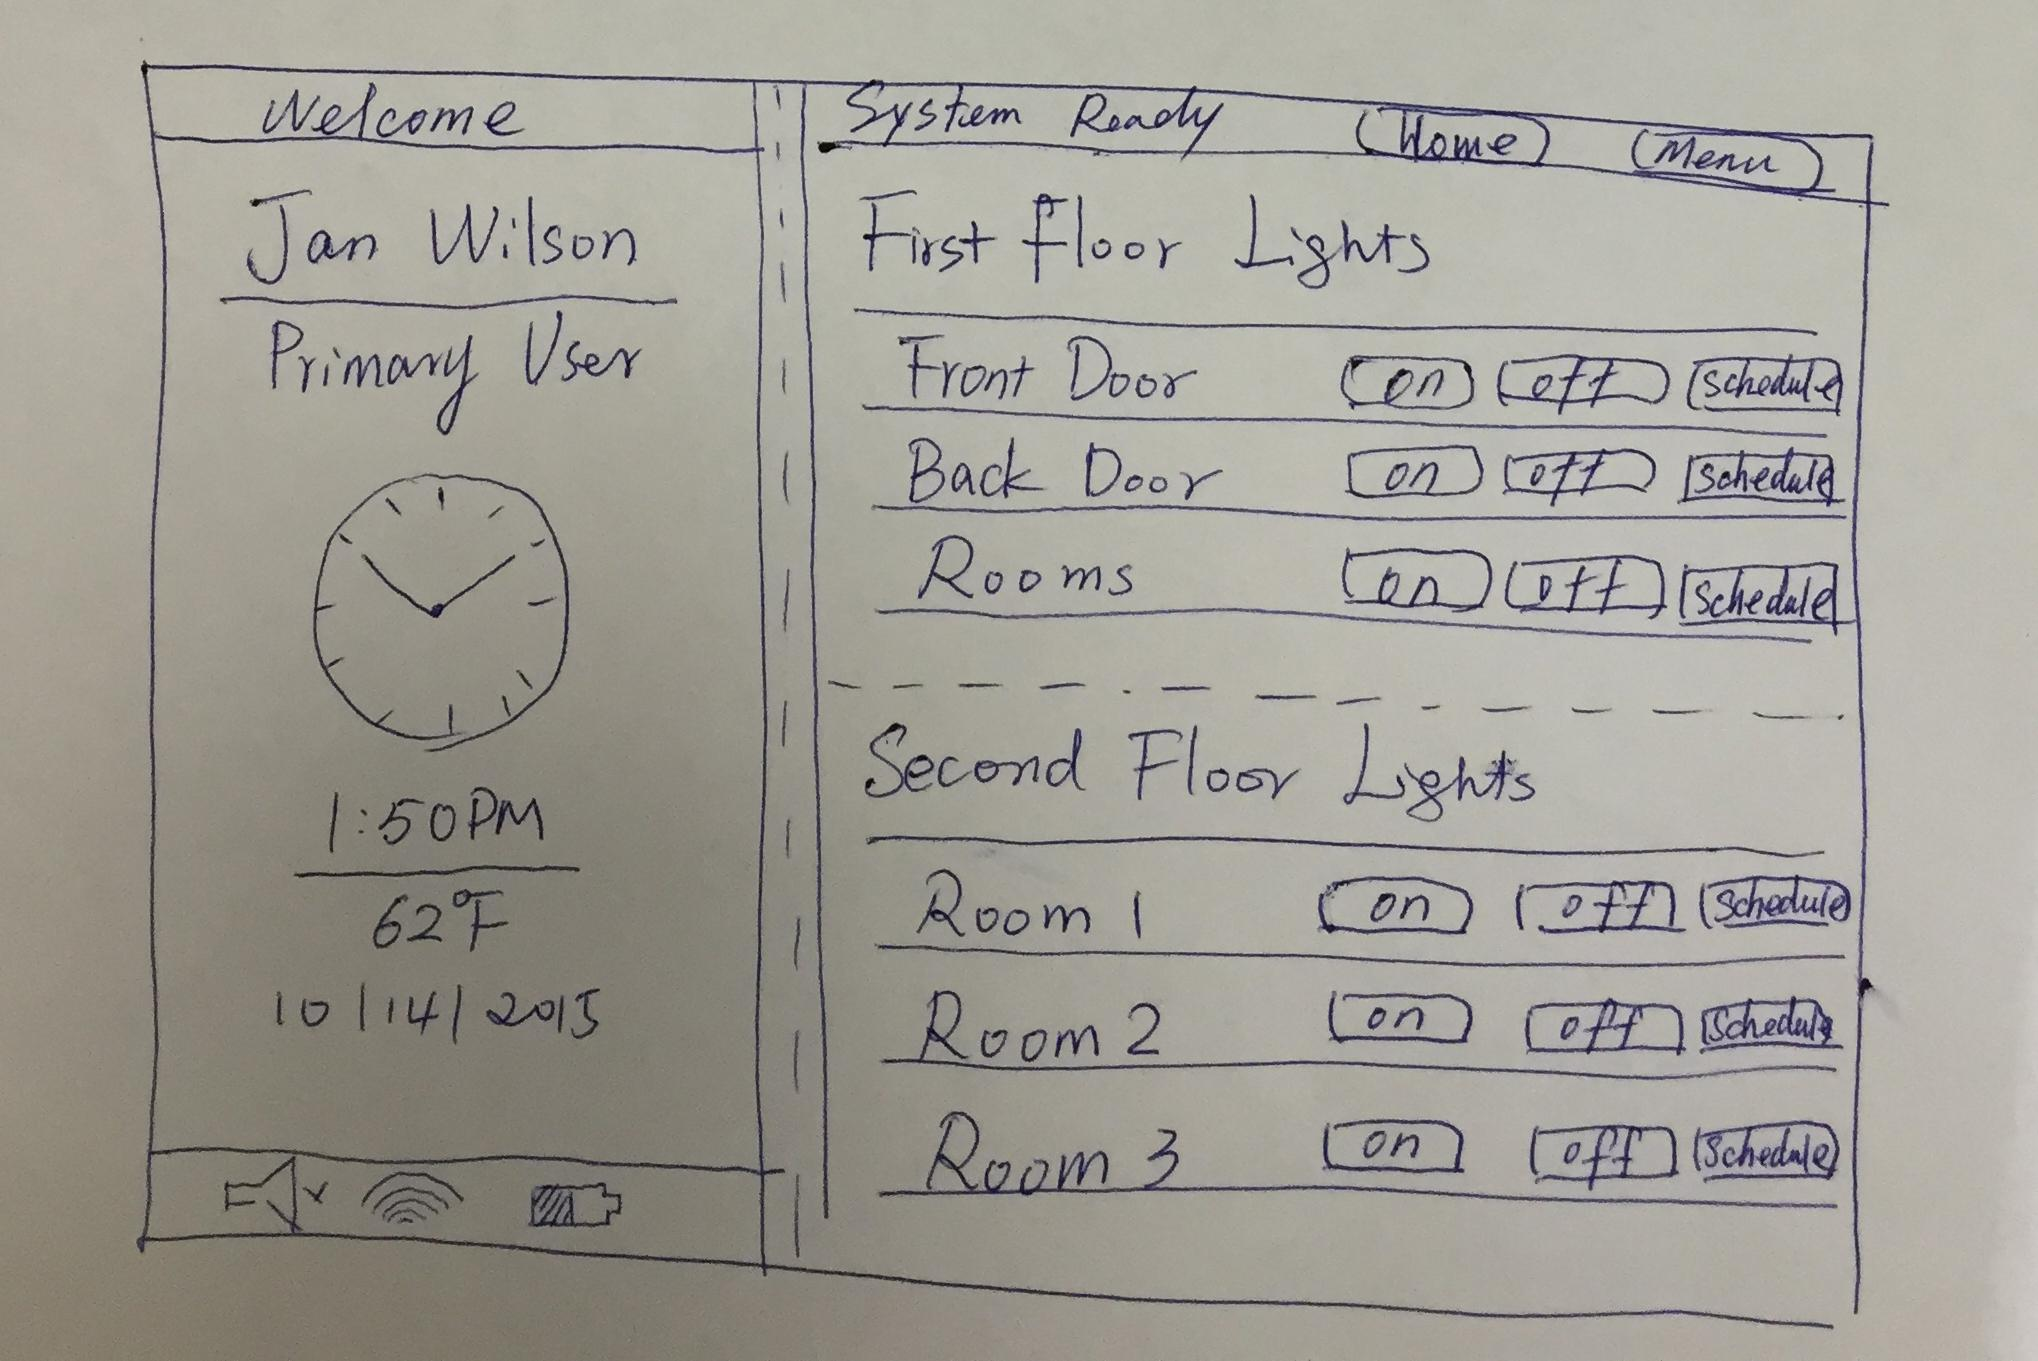 Welcome
Jan Wilson
Primary User
1:50PM
62°F
10/14/2015
System Ready Home Menu
First Floor Lights
Front Door on off Schedule
Back Door on off Schedule
Rooms on off Schedule
Second Floor Lights
Room 1 on off Schedule
Room 2 on off Schedule
Room 3 on off Schedule